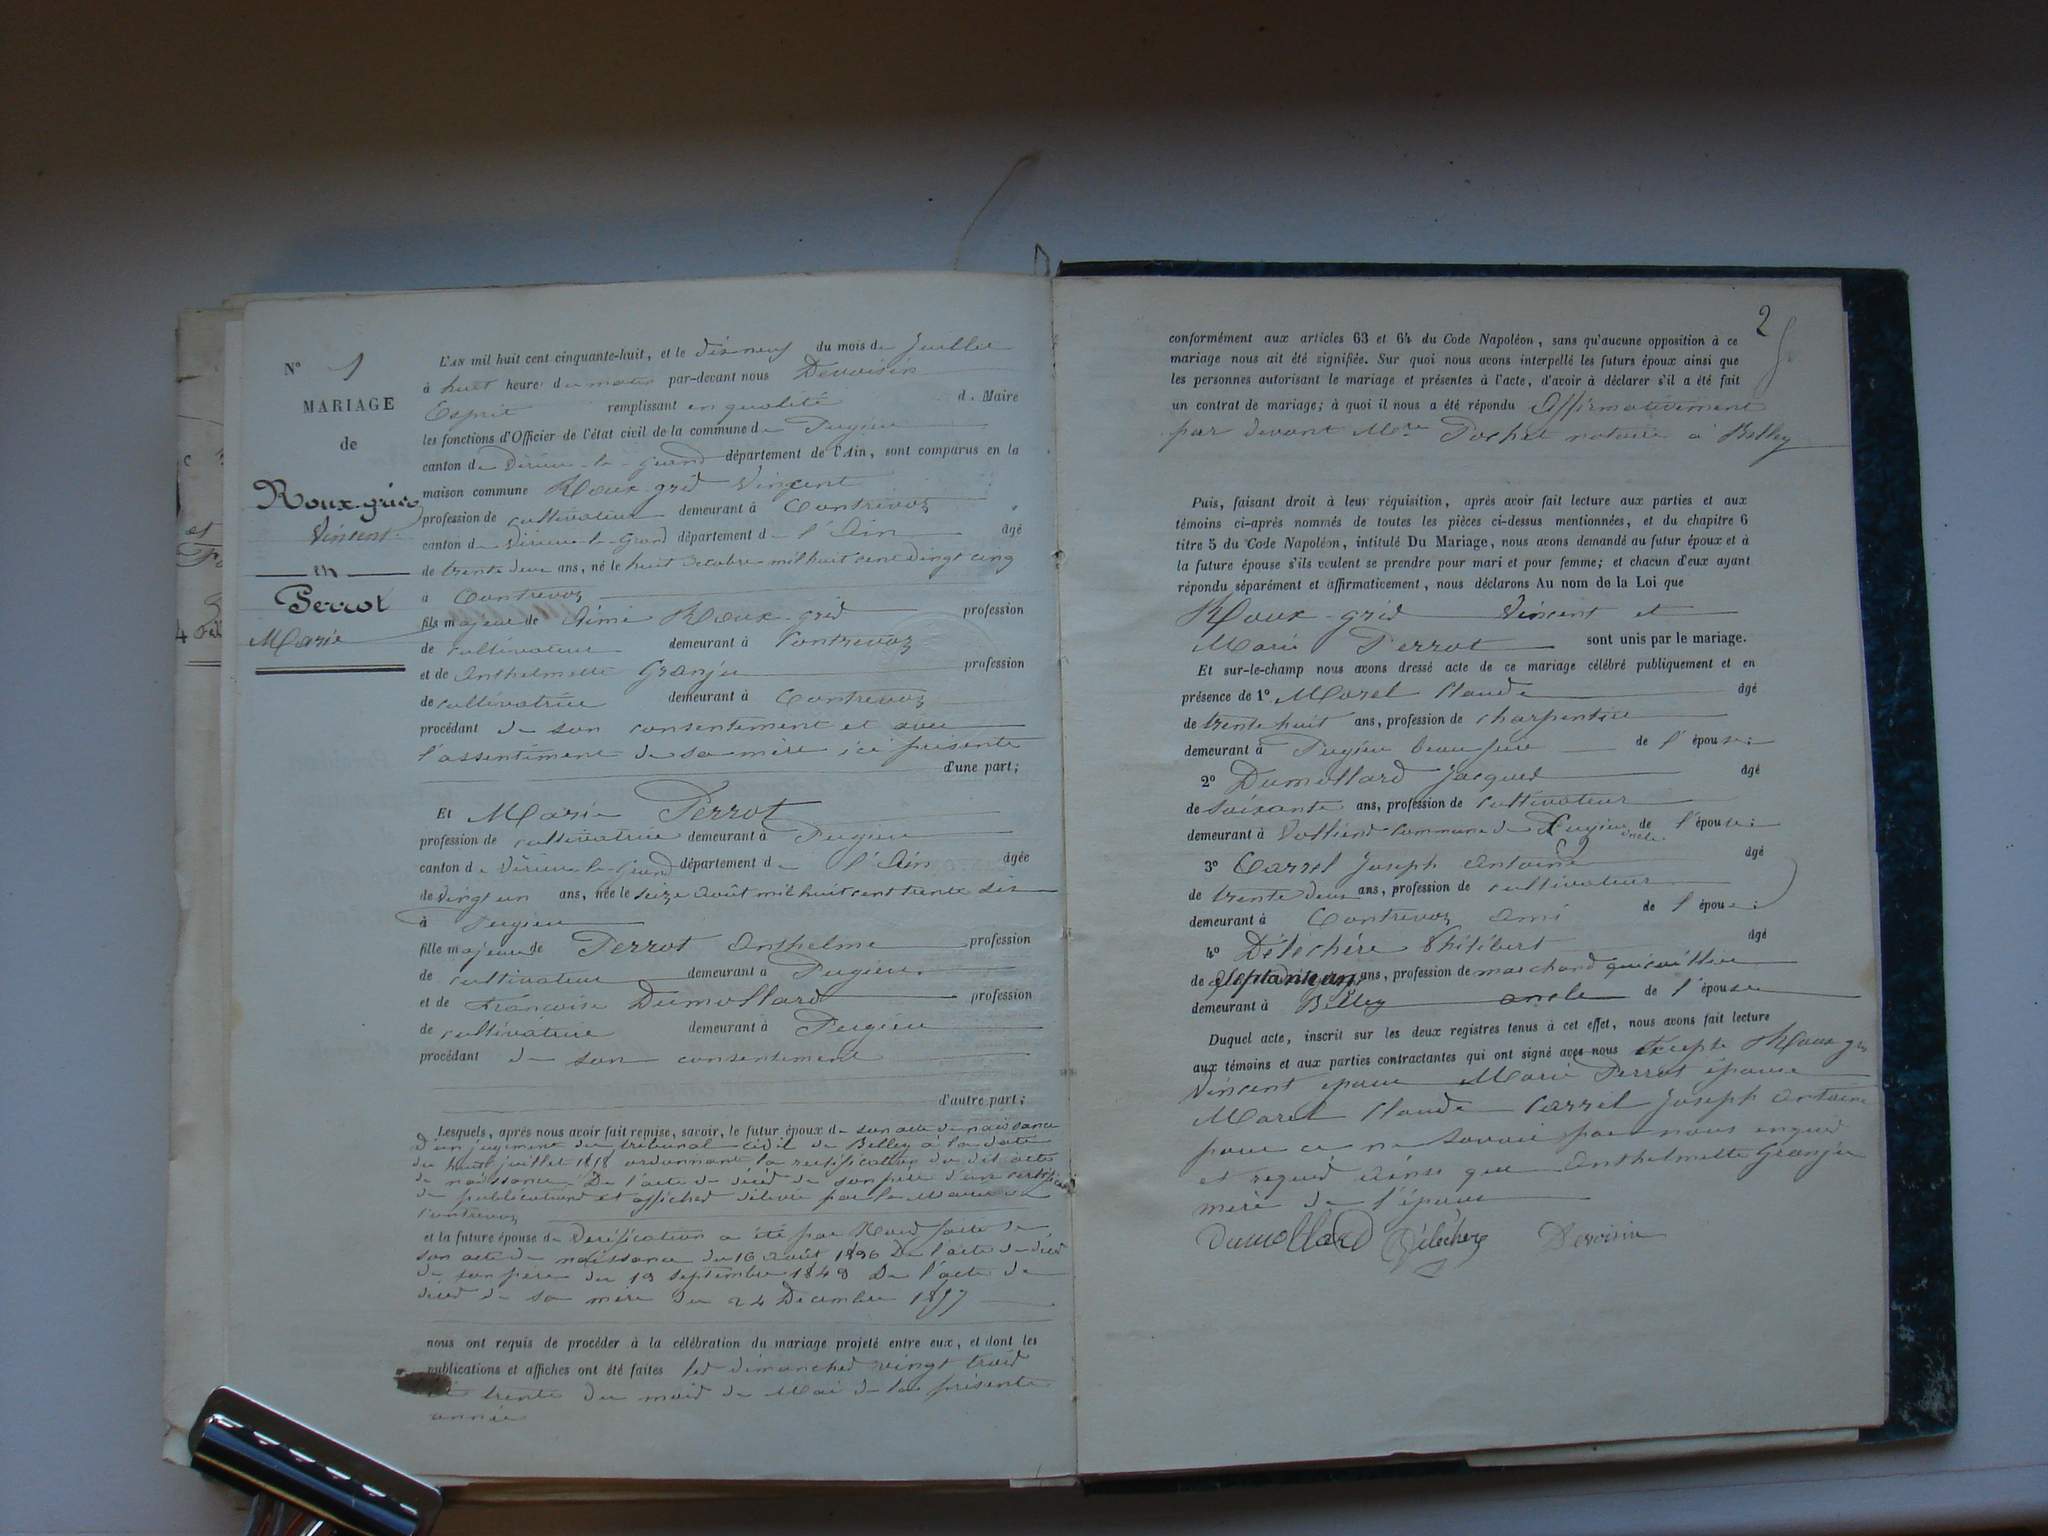 N° 1
MARIAGE
de
Roux-grid
Vincent
en
Perrot
Marie
L'AN mil huit cent cinquante-huit, et le dix neuf du mois de Juillet
à huit heure du matin par-devant nous Devoisin
Esprit remplissant en qualité d. Maire
les fonctions d'Officier de l'état civil de la commune de Pugieu
canton de Virieu-le-grand département de l'Ain, sont comparus en la
maison commune Roux-grid Vincent
profession de cultivateur demeurant à Contrevoz
canton de Virieu-le-Grand département de l'Ain âgé
de trente deux ans, né le huit octobre mil huit cent vingt cinq
à Contrevoz
fils majeur de Aimé Roux-grid profession
de cultivateur demeurant à Contrevoz
et de Anthelmette Granju profession
de cultivatrice demeurant à Contrevoz
procédant de son consentement et avec
l'assentiment de sa mère ici présente
d'une part;
Et Marie Perrot
profession de cultivatrice demeurant à Pugieu
canton de Virieu-le-Grand département de l'Ain âgée
de vingt un ans, née le seize août mil huit cent trente six
à Pugieu
fille majeure de Perrot Anthelme profession
de cultivateur demeurant à Pugieu
et de Françoise Dumollard profession
de cultivatrice demeurant à Pugieu
procédant de son consentement
d'autre part;
Lesquels, après nous avoir fait remise, savoir, le futur époux de son acte de naissance
D'un jugement du tribunal civil de Belley à la date
du huit juillet 1858 ordonnant la rectification du dit acte
de naissance De l'acte de décès de son père d'un certificat
de publications et affiches délivré par le Maire de
Contrevoz
et la future épouse de Vérification a été par Nous faite de
son acte de naissance du 16 août 1836 De l'acte de décès
de son père du 19 septembre 1849 De l'acte de
décès de sa mère du 24 Décembre 1857
nous ont requis de procéder à la célébration du mariage projeté entre eux, et dont les
publications et affiches ont été faites les dimanches vingt trois
et trente du mois de Mai de la présente
année
2
conformément aux articles 63 et 64 du Code Napoléon, sans qu'aucune opposition à ce
mariage nous ait été signifiée. Sur quoi nous avons interpellé les futurs époux ainsi que
les personnes autorisant le mariage et présentes à l'acte, d'avoir à déclarer s'il a été fait
un contrat de mariage; à quoi il nous a été répondu Affirmativement
par devant Mtre Pochet notaire à Belley
Puis, faisant droit à leur réquisition, après avoir fait lecture aux parties et aux
témoins ci-après nommés de toutes les pièces ci-dessus mentionnées, et du chapitre 6
titre 5 du Code Napoléon, intitulé Du Mariage, nous avons demandé au futur époux et à
la future épouse s'ils veulent se prendre pour mari et pour femme; et chacun d'eux ayant
répondu séparément et affirmativement, nous déclarons Au nom de la Loi que
Roux-grid Vincent et
Marie Perrot sont unis par le mariage.
Et sur-le-champ nous avons dressé acte de ce mariage célébré publiquement et en
présence de 1° Morel Claude âgé
de trente huit ans, profession de charpentier
demeurant à Pugieu beau frère de l'épouse;
2° Dumollard Jacques âgé
de soixante ans, profession de cultivateur
demeurant à Vollien commune de Pugieu oncle de l'épouse;
3° Carrel Joseph Antoine âgé
de trente deux ans, profession de cultivateur
demeurant à Contrevoz ami de l'époux;
4° Déléchère Philibert âgé
de ans, profession de marchand quincaillier
demeurant à Belley oncle de l'épouse
Duquel acte, inscrit sur les deux registres tenus à cet effet, nous avons fait lecture
aux témoins et aux parties contractantes qui ont signé avec nous excepté Roux grid
Vincent époux Marie Perrot épouse
Morel Claude Carrel Joseph Antoine
pour ce ne savoir par nous enquis
et requis ainsi que Anthelmette Granju
mère de l'époux
Dumollard Déléchère Devoisin